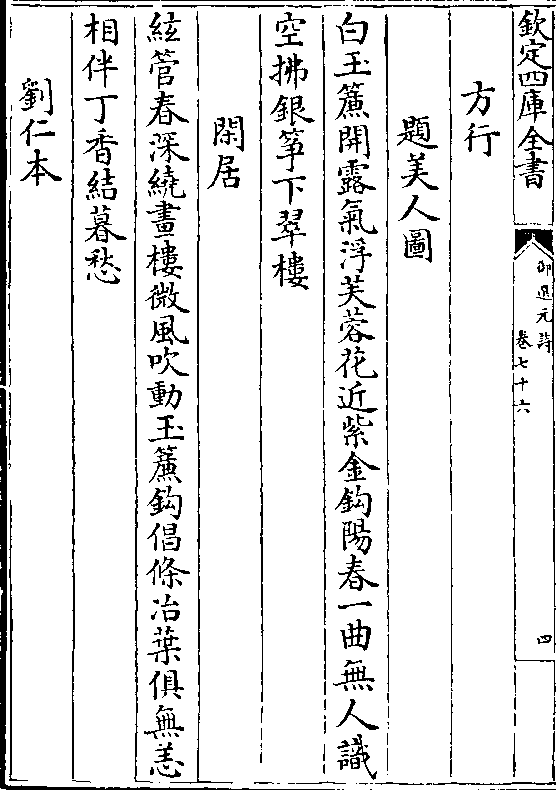 欽定四庫全書
御選元詩
卷七十六
四
方行
題美人圖
白玉簾開露氣浮芙蓉花近紫金鈎陽春一曲無人識
空拂銀筝下翠樓
閑居
絃管春深繞畫樓微風吹動玉簾鈎倡條冶葉俱無恙
相伴丁香結暮愁
劉仁本